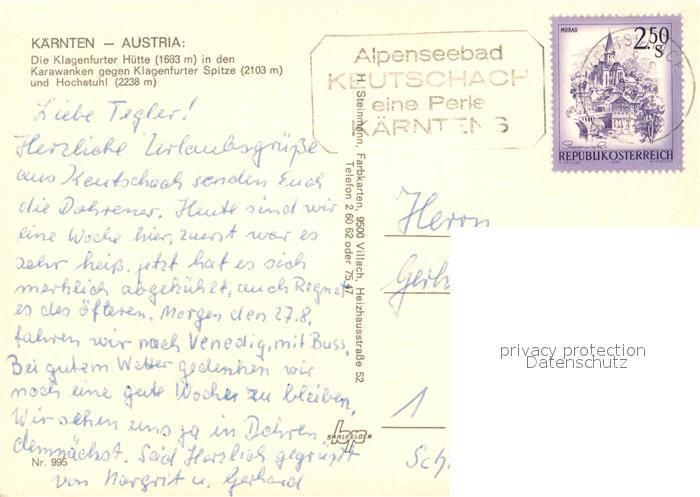 KÄRNTEN – AUSTRIA:
Die Klagenfurter Hütte (1663 m) in den
Karawanken gegen Klagenfurter Spitze (2103 m)
und Hochstuhl (2238 m)
Liebe Tegler!
Herzliche Urlaubsgrüße
aus Keutschach senden Euch
die Dohrener. Heute sind wir
eine Woche hier, zuerst war es
sehr heiß. jetzt hat es sich
merklich abgekühlt, auch Regnet
es des öfteren. Morgen den 27.8.
fahren wir nach Venedig, mit Buss.
Bei gutem Wetter gedenken wir
noch eine gute Woche zu bleiben.
Wir sehen uns ja in Dohren
demnächst. Seid Herzlich gegrüßt
von Margrit u. Gerhard
Nr. 995
H. Steinmann, Farbkarten, 9500 Villach, Heizhausstraße 52
Telefon 2 60 62 oder 75 47
SAALFELDEN
Alpenseebad
KEUTSCHACH
eine Perle
KÄRNTENS
MURAU
2.50
S
Steiermark
REPUBLIK ÖSTERREICH
Herrn
Gerh
1
Sch
privacy protection
Datenschutz